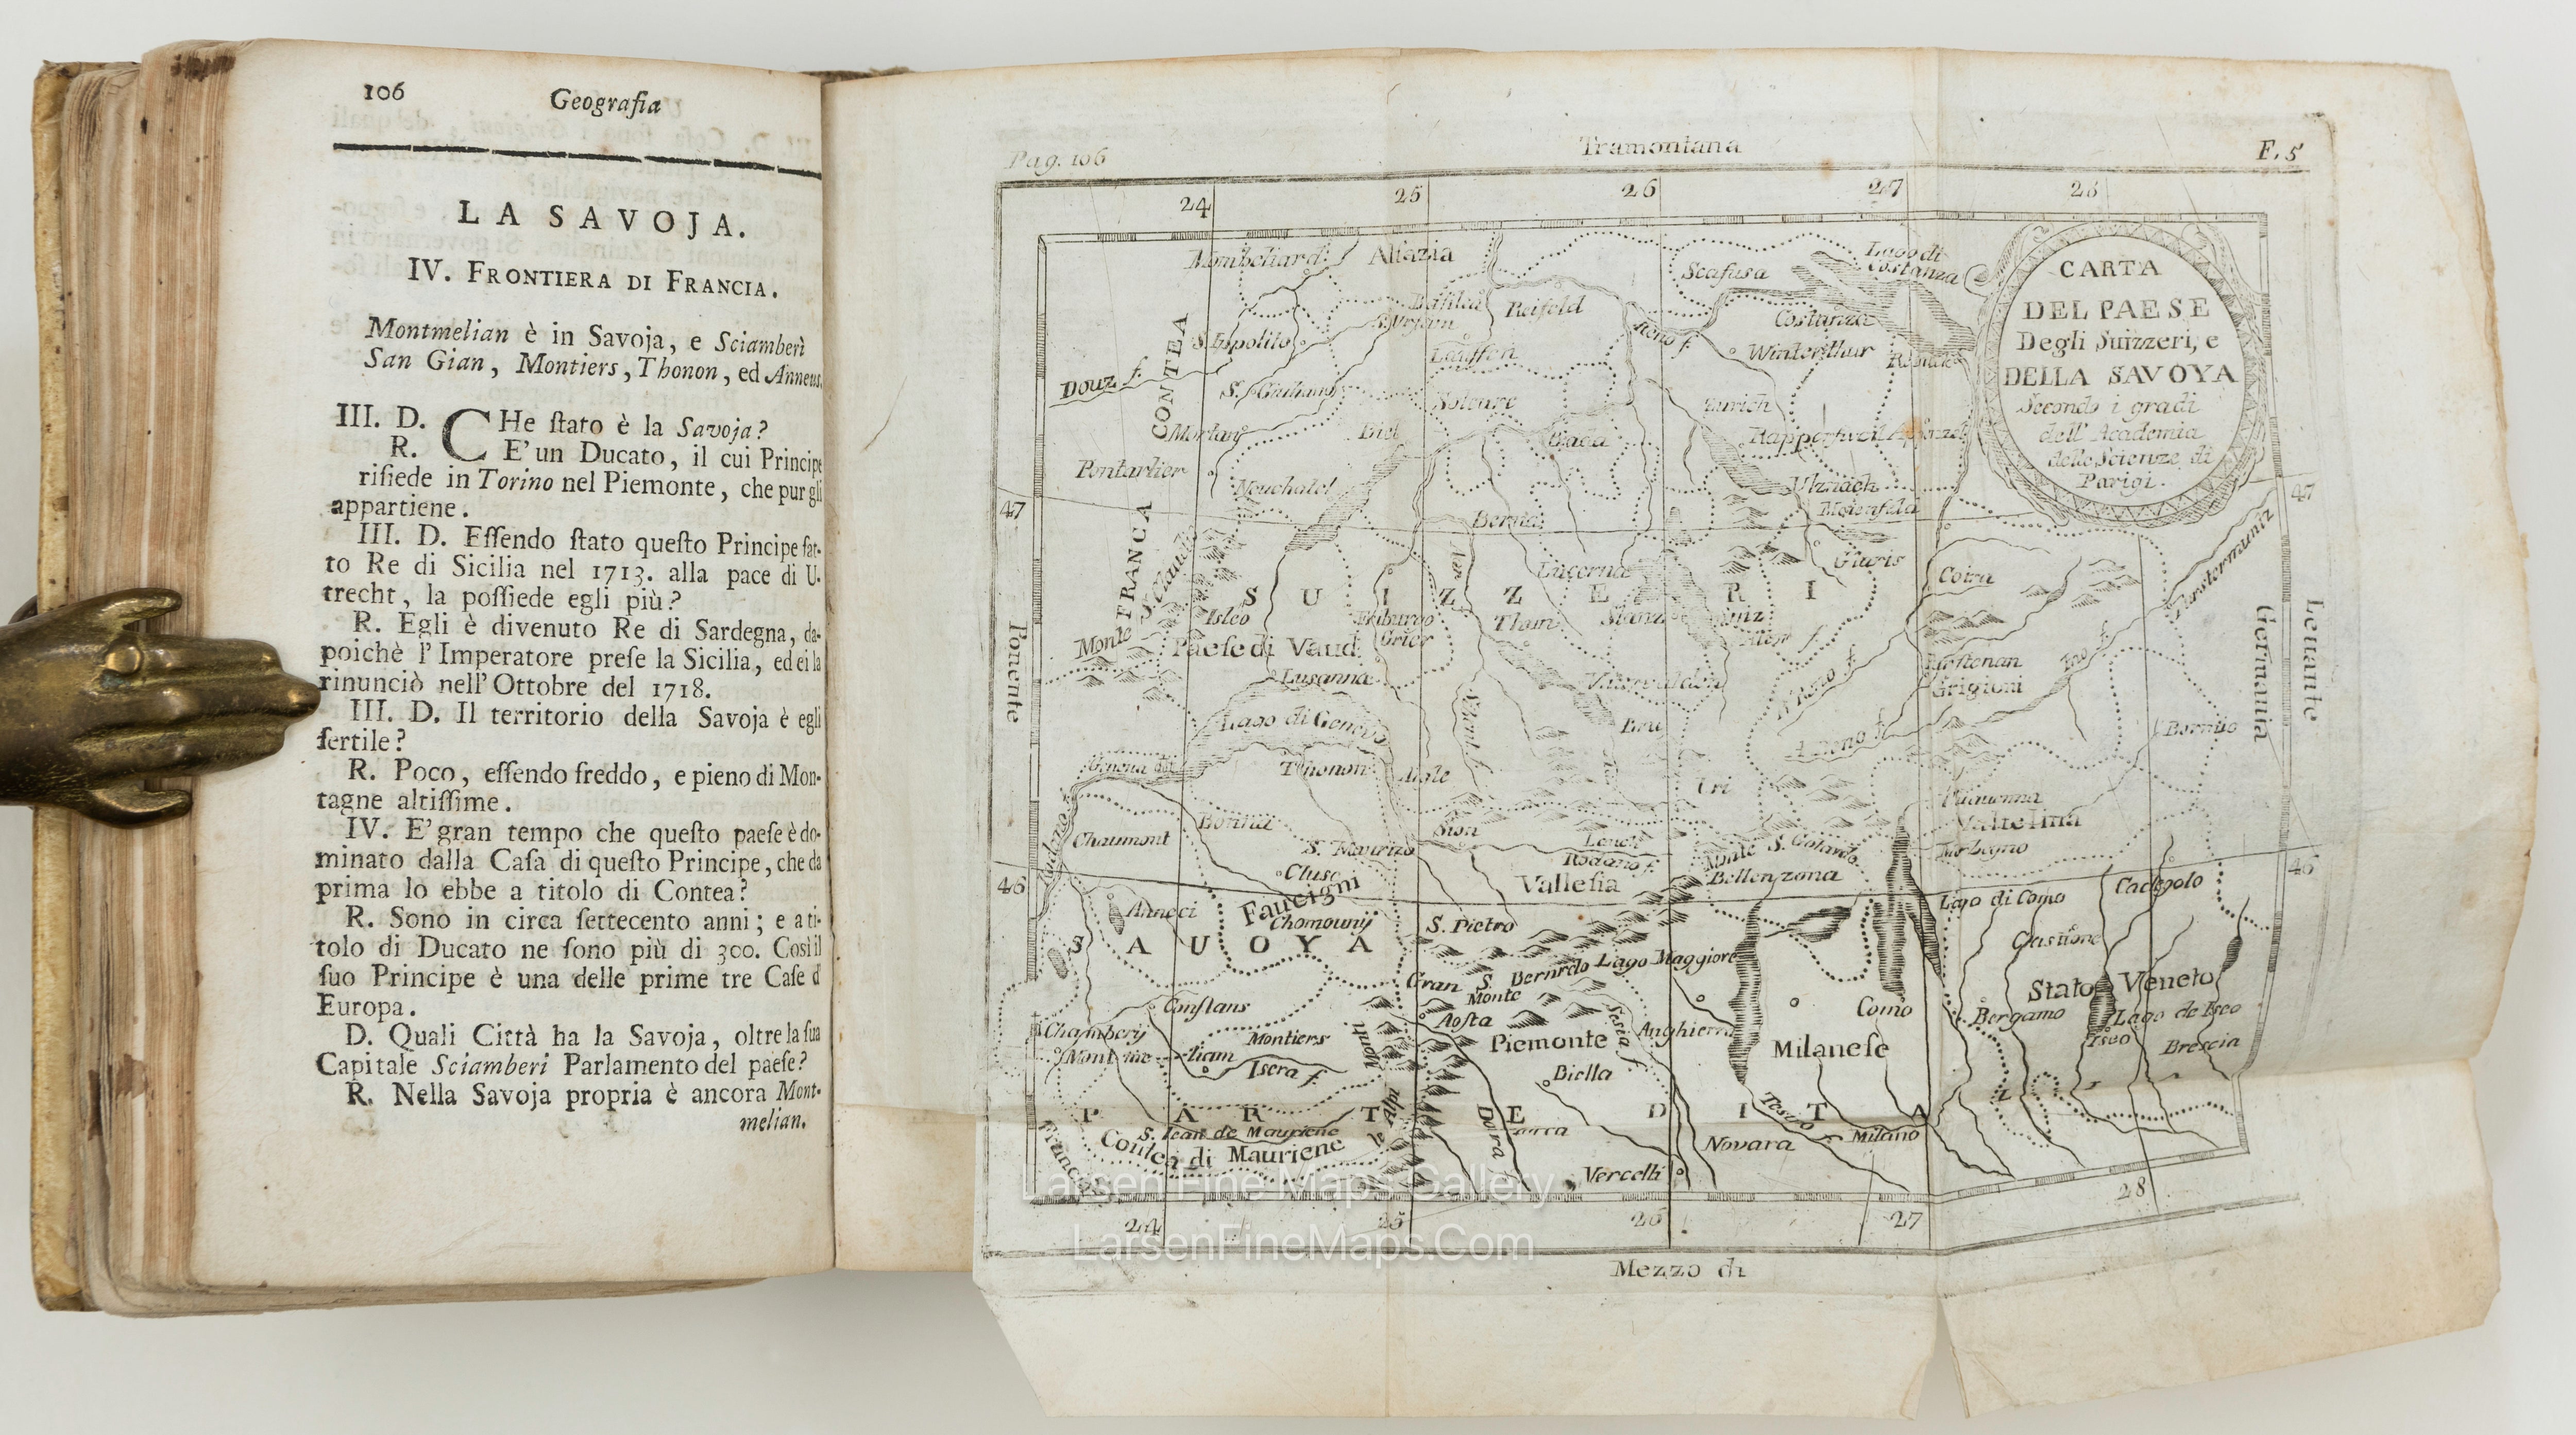 106 Geografia
LA SAVOJA.
IV. FRONTIERA DI FRANCIA.
Montmelian è in Savoja, e Sciamberì
San Gian, Montiers, Thonon, ed
III. D. CHe ſtato è la Savoja?
R. E' un Ducato, il cui Principe
riſiede in Torino nel Piemonte, che pur gli
appartiene.
III. D. Eſſendo ſtato queſto Principe fat-
to Re di Sicilia nel 1713. alla pace di U-
trecht, la poſſiede egli più?
R. Egli è divenuto Re di Sardegna, da-
poichè l'Imperatore preſe la Sicilia, ed ei la
rinunciò nell'Ottobre del 1718.
III. D. Il territorio della Savoja è egli
fertile?
R. Poco, eſſendo freddo, e pieno di Mon-
tagne altiſſime.
IV. E' gran tempo che queſto paeſe è do-
minato dalla Caſa di queſto Principe, che da
prima lo ebbe a titolo di Contea?
R. Sono in circa ſettecento anni; e a ti-
tolo di Ducato ne ſono più di 300. Così il
ſuo Principe è una delle prime tre Caſe d'
Europa.
D. Quali Città ha la Savoja, oltre la ſua
Capitale Sciamberi Parlamento del paeſe?
R. Nella Savoja propria è ancora Mont-
melian.
Pag. 106
Tramontana
F. 5
24 25 26 27 28
CARTA
DEL PAESE
Degli Suizzeri, e
DELLA SAVOYA
Secondo i gradi
dell' Academia
delle Scienze di
Parigi.
Mombeliard
Alsazia
Scafusa
Lago di
Costanza
Basilea
Reifeld
S. Ippolito
Reno f.
Costanza
Lauffen
Winterthur
Douz f.
CONTEA
S. Giuliano
Soleure
Zurich
Biel
Bada
Rapperſweil
Pontarlier
Neuchatel
Utznach
47
47
Berna
FRANCA
Glaris
Lucerna
Coira
SUIZZERI
Friburgo
Thun
Stanz
Monte S. Claudio
Paeſe di Vaud
Ponente
Lusanna
Grigioni
Ino f.
Lettante
Germania
Lago di Geneva
Bormio
Thonon
Aigle
Uri
Valtelina
Chaumont
Bonna
Sion
S. Maurizo
Rodano f.
Monte S. Gotardo
Morbegno
46
46
Cluse
Valleſia
Bellenzona
Lago di Como
Annaci
Faucigni
Chomouny
S. Pietro
SAUOYA
Gran S. Bernrdo
Monte
Lago Maggiore
Stato Veneto
Constans
Aosta
Como
Bergamo
Lago de Iseo
Iseo
Chambery
Montiers
Piemonte
Sesia f.
Anghierra
Milaneſe
Brescia
Isera f.
Biella
PARTE D ITA
le Alpi
Monti
Dora
Tesino
S. Iean de Mauriene
Contea di Mauriene
Novara
Milano
Francia
Vercelli
24 25 26 27 28
Mezzo di
Larsen Fine Maps Gallery
LarsenFineMaps.Com